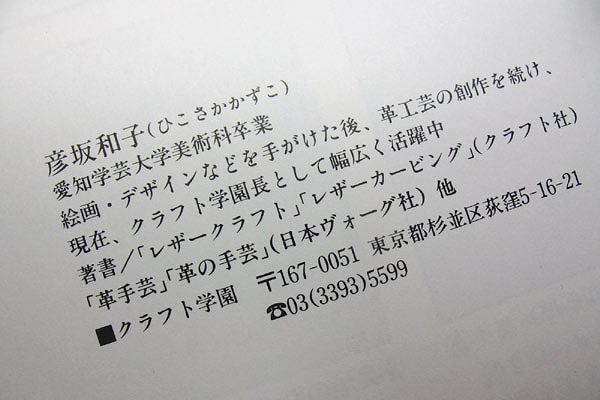 彦坂和子(ひこさかかずこ)
愛知学芸大学美術科卒業
絵画・デザインなどを手がけた後、革工芸の創作を続け、
現在、クラフト学園長として幅広く活躍中
著書/「レザークラフト」「レザーカービング」(クラフト社)
「革手芸」「革の手芸」(日本ヴォーグ社) 他
■クラフト学園 〒167-0051 東京都杉並区荻窪5-16-21
☎03(3393)5599